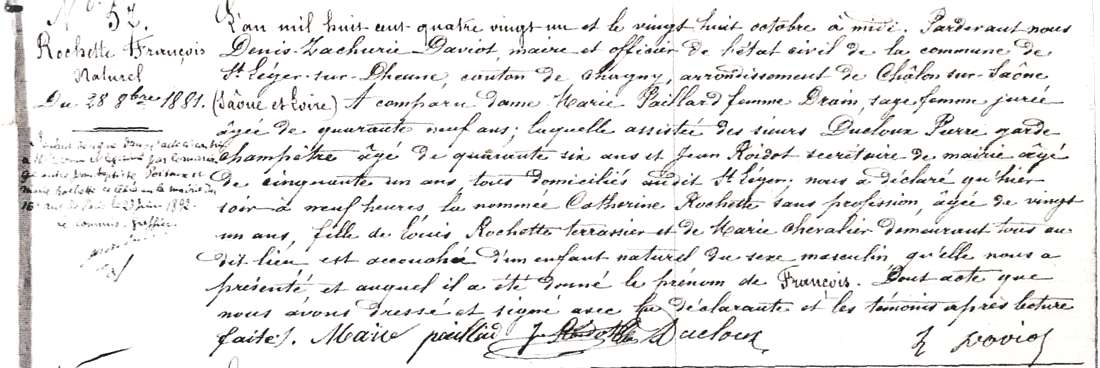 No 57.
Rochette François
Naturel
Du 28 8bre 1881.
L'an mil huit cent quatre vingt un et le vingt huit octobre à midi. Pardevant nous
Denis Zacharie Daviot maire et officier de l'état civil de la commune de
St Léger-sur-Dheune canton de Chagny, arrondissement de Châlon-sur-Saône
(Saône et Loire) A comparu dame Marie Paillard femme Drain, sage femme jurée
âgée de quarante neuf ans; laquelle assistée des sieurs Ducloux Pierre garde
champêtre âgé de quarante six ans et Jean Roidot secrétaire de mairie âgé
de cinquante un ans, tous domiciliés audit St Léger, nous a déclaré qu'hier
soir à neuf heures, la nommée Catherine Rochette sans profession, âgée de vingt
un ans, fille de Louis Rochette terrassier et de Marie Chevalier demeurant tous au
dit lieu, est accouchée d'un enfant naturel du sexe masculin qu'elle nous a
présenté et auquel il a été donné le prénom de François. Dont acte que
nous avons dressé et signé avec la déclarante et les témoins après lecture
faite. Marie paillard J Roidot Ducloux Z Daviot